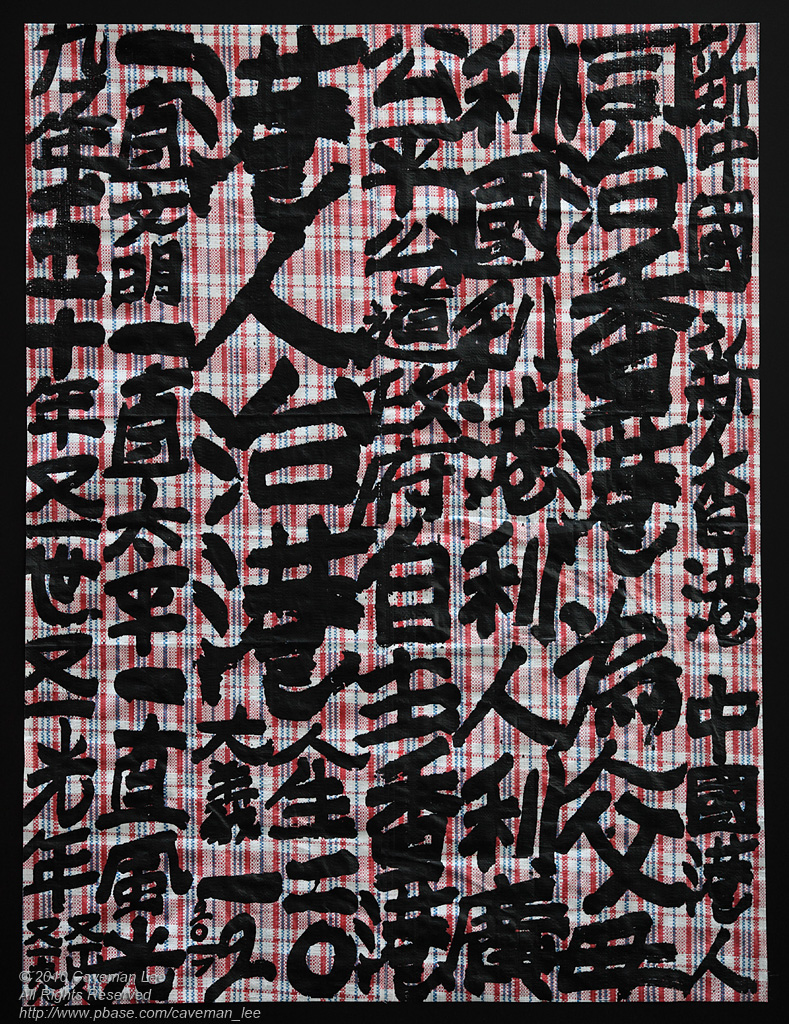 新中國 新香港 中國港人
治香港為父母
利國利港利人利廣
公平公道政府自主香港
港人治港
人生二〇
大義一九
一直文明一直太平一直風光
九七年五十年又一世又一光年
© 2010 Caveman Lee
All Rights Reserved
http://www.pbase.com/caveman_lee